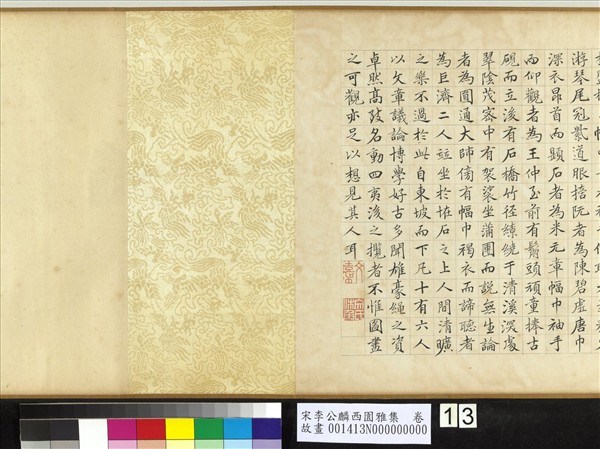 游琴尾冠紫道服摛阮者為陳碧虛唐巾
深衣昂首而題石者為米元章幅巾袖手
而仰觀者為王仲至前有鬅頭頑童捧古
硯而立後有石橋竹徑繚繞于清溪深處
翠陰茂密中有袈裟坐蒲團而說無生論
者為圓通大師傍有幅巾褐衣而諦聽者
為巨濟二人並坐於怪石之上人間清曠
之樂不過於此自東坡而下凡十有六人
以文章議論博學好古多聞雄豪絕之資
卓然高致名動四夷後之攬者不惟圖畫
之可觀亦足以想見其人耳
宋李公麟西園雅集 卷
故畫001413N000000000
13